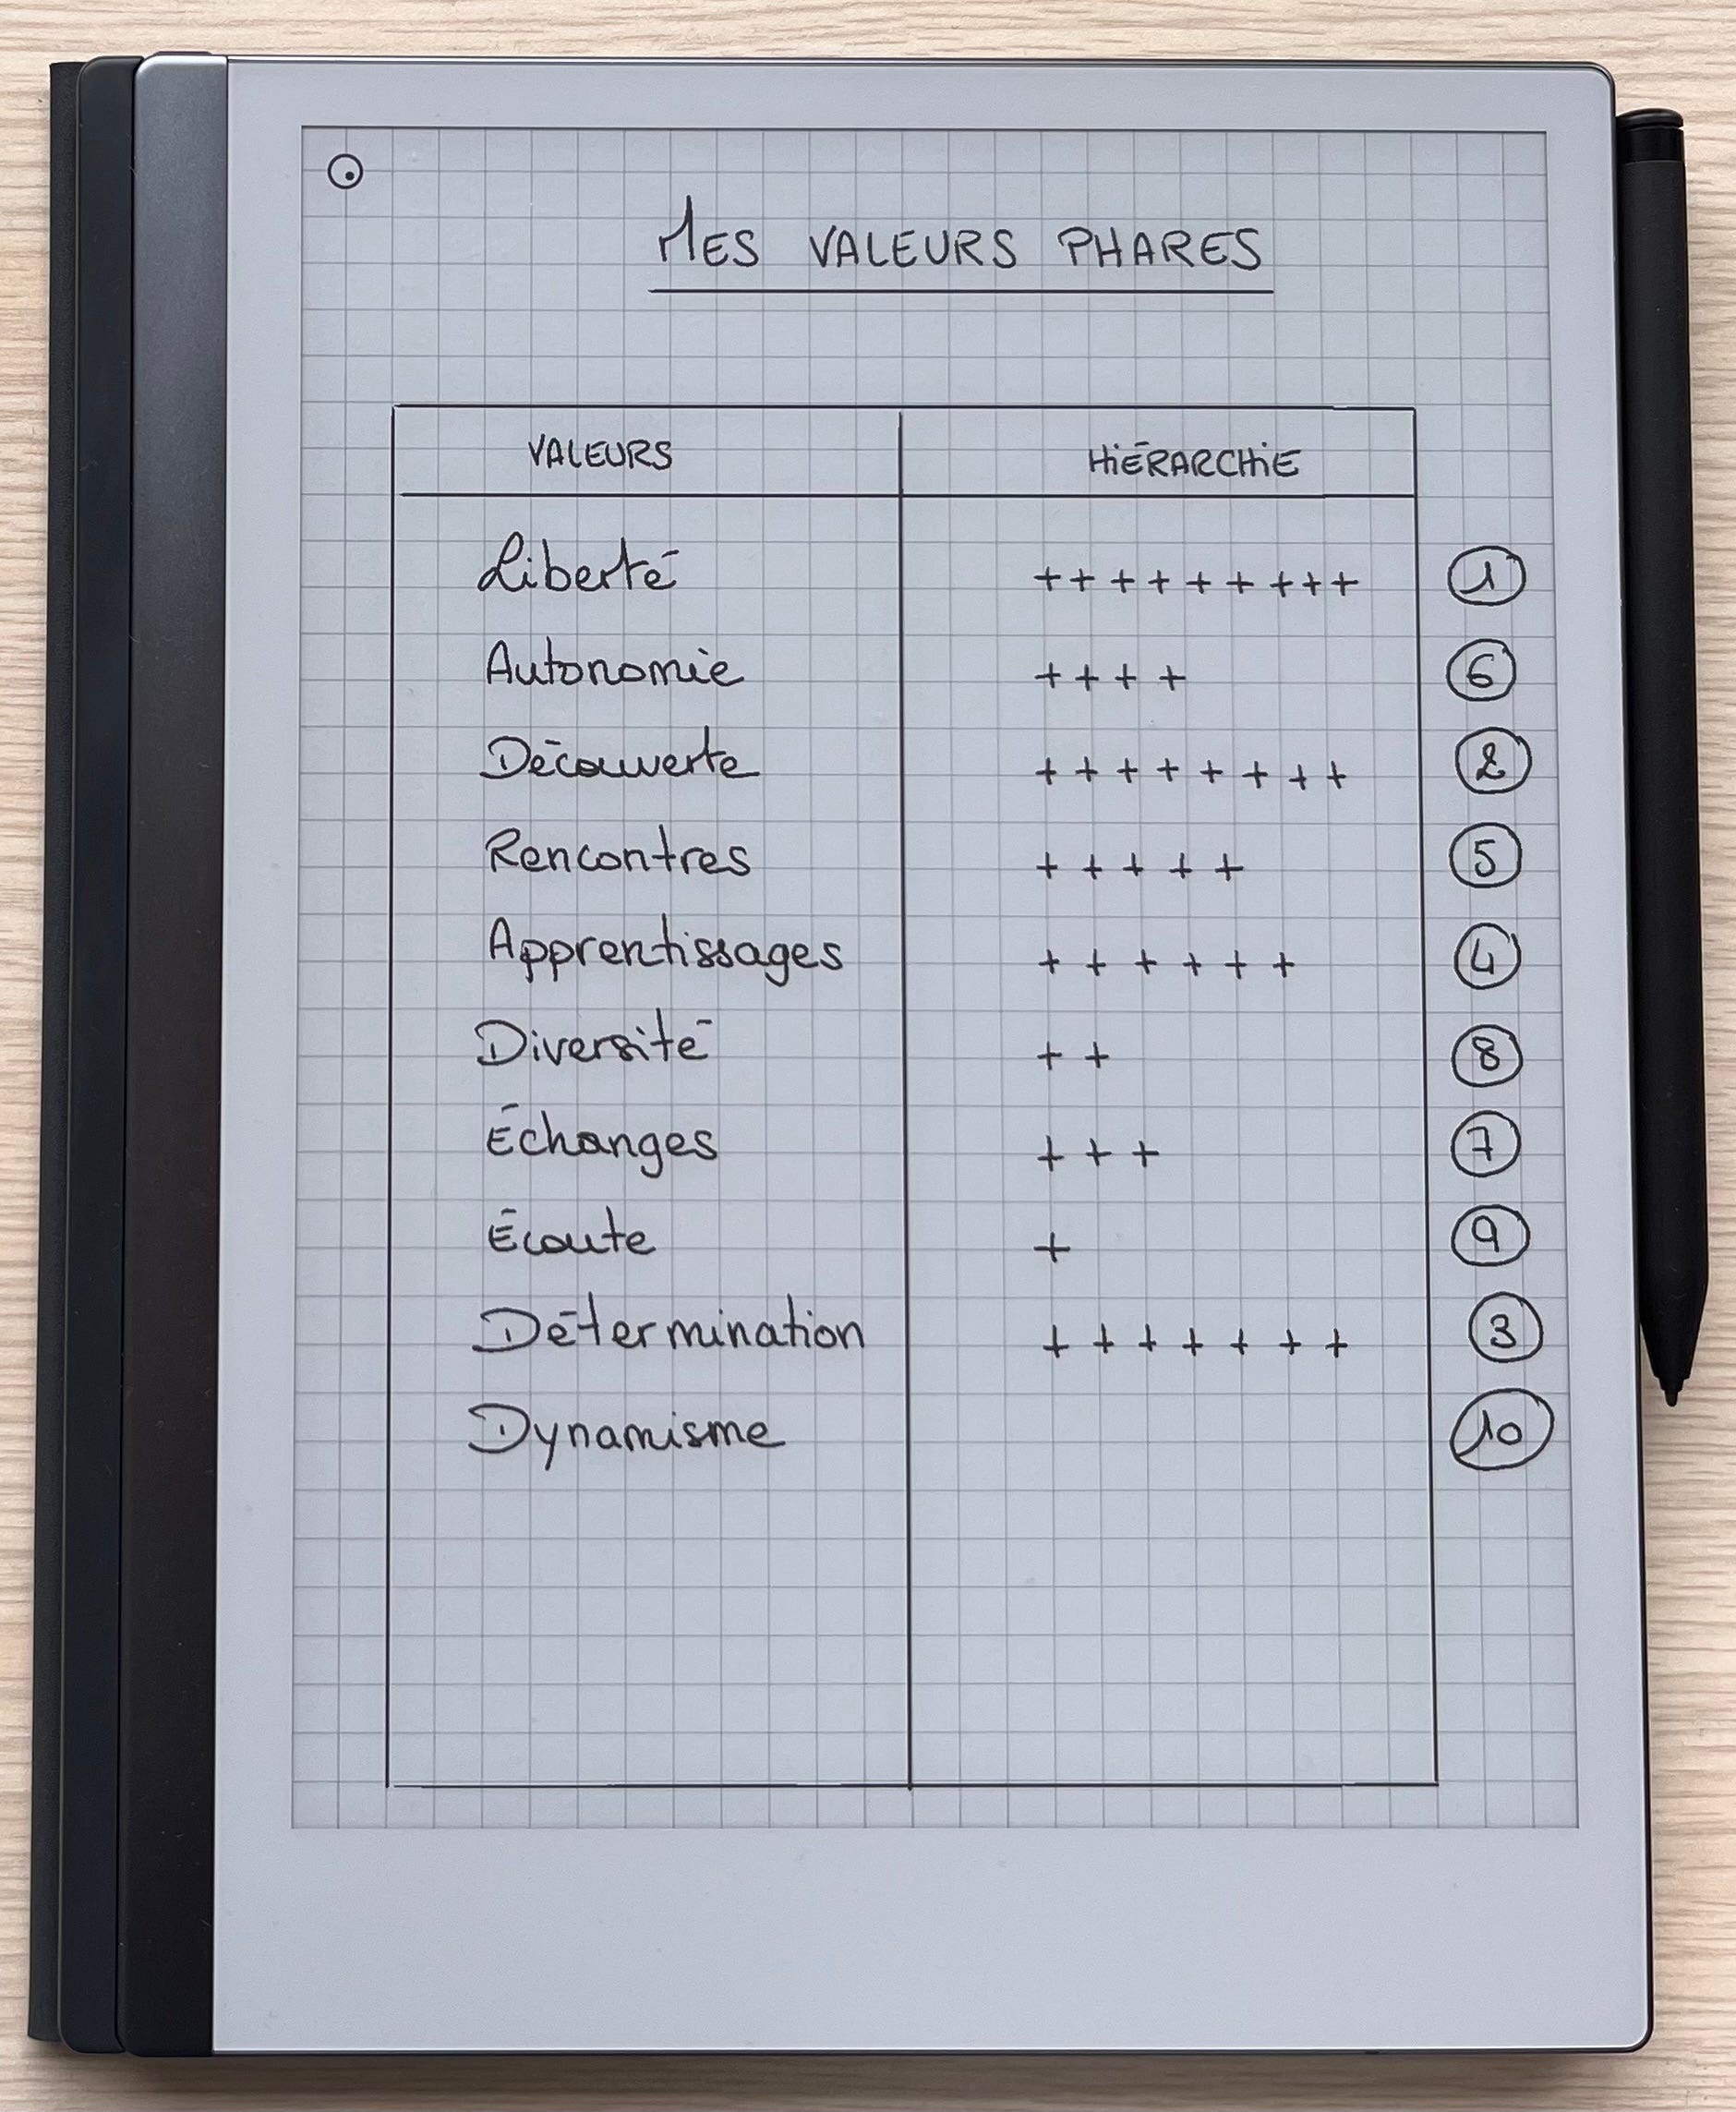 MES VALEURS PHARES
VALEURS HIÉRARCHIE
Liberté +++++++++ 1
Autonomie ++++ 6
Découverte ++++++++ 2
Rencontres +++++ 5
Apprentissages ++++++ 4
Diversité ++ 8
Échanges +++ 7
Écoute + 9
Détermination +++++++ 3
Dynamisme 10